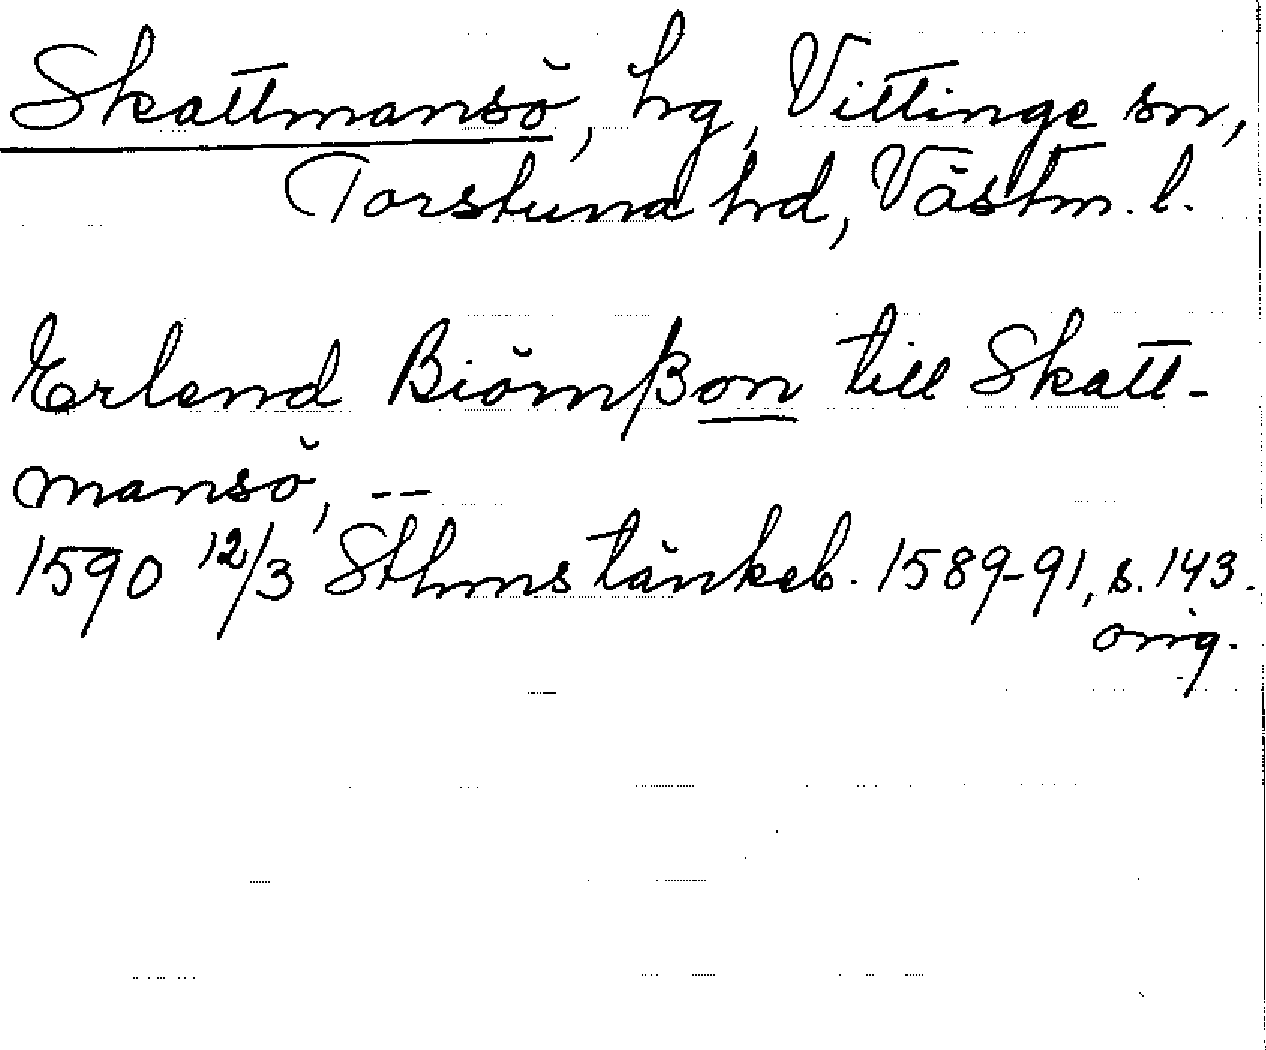 Skattmansö, hg, Vittinge sn,
Torstuna hd, Västm. l.
Erland Biörnßon till Skatt-
mansö, --
1590 12/3 Sthms tänkeb. 1589-91, s. 143.
orig.